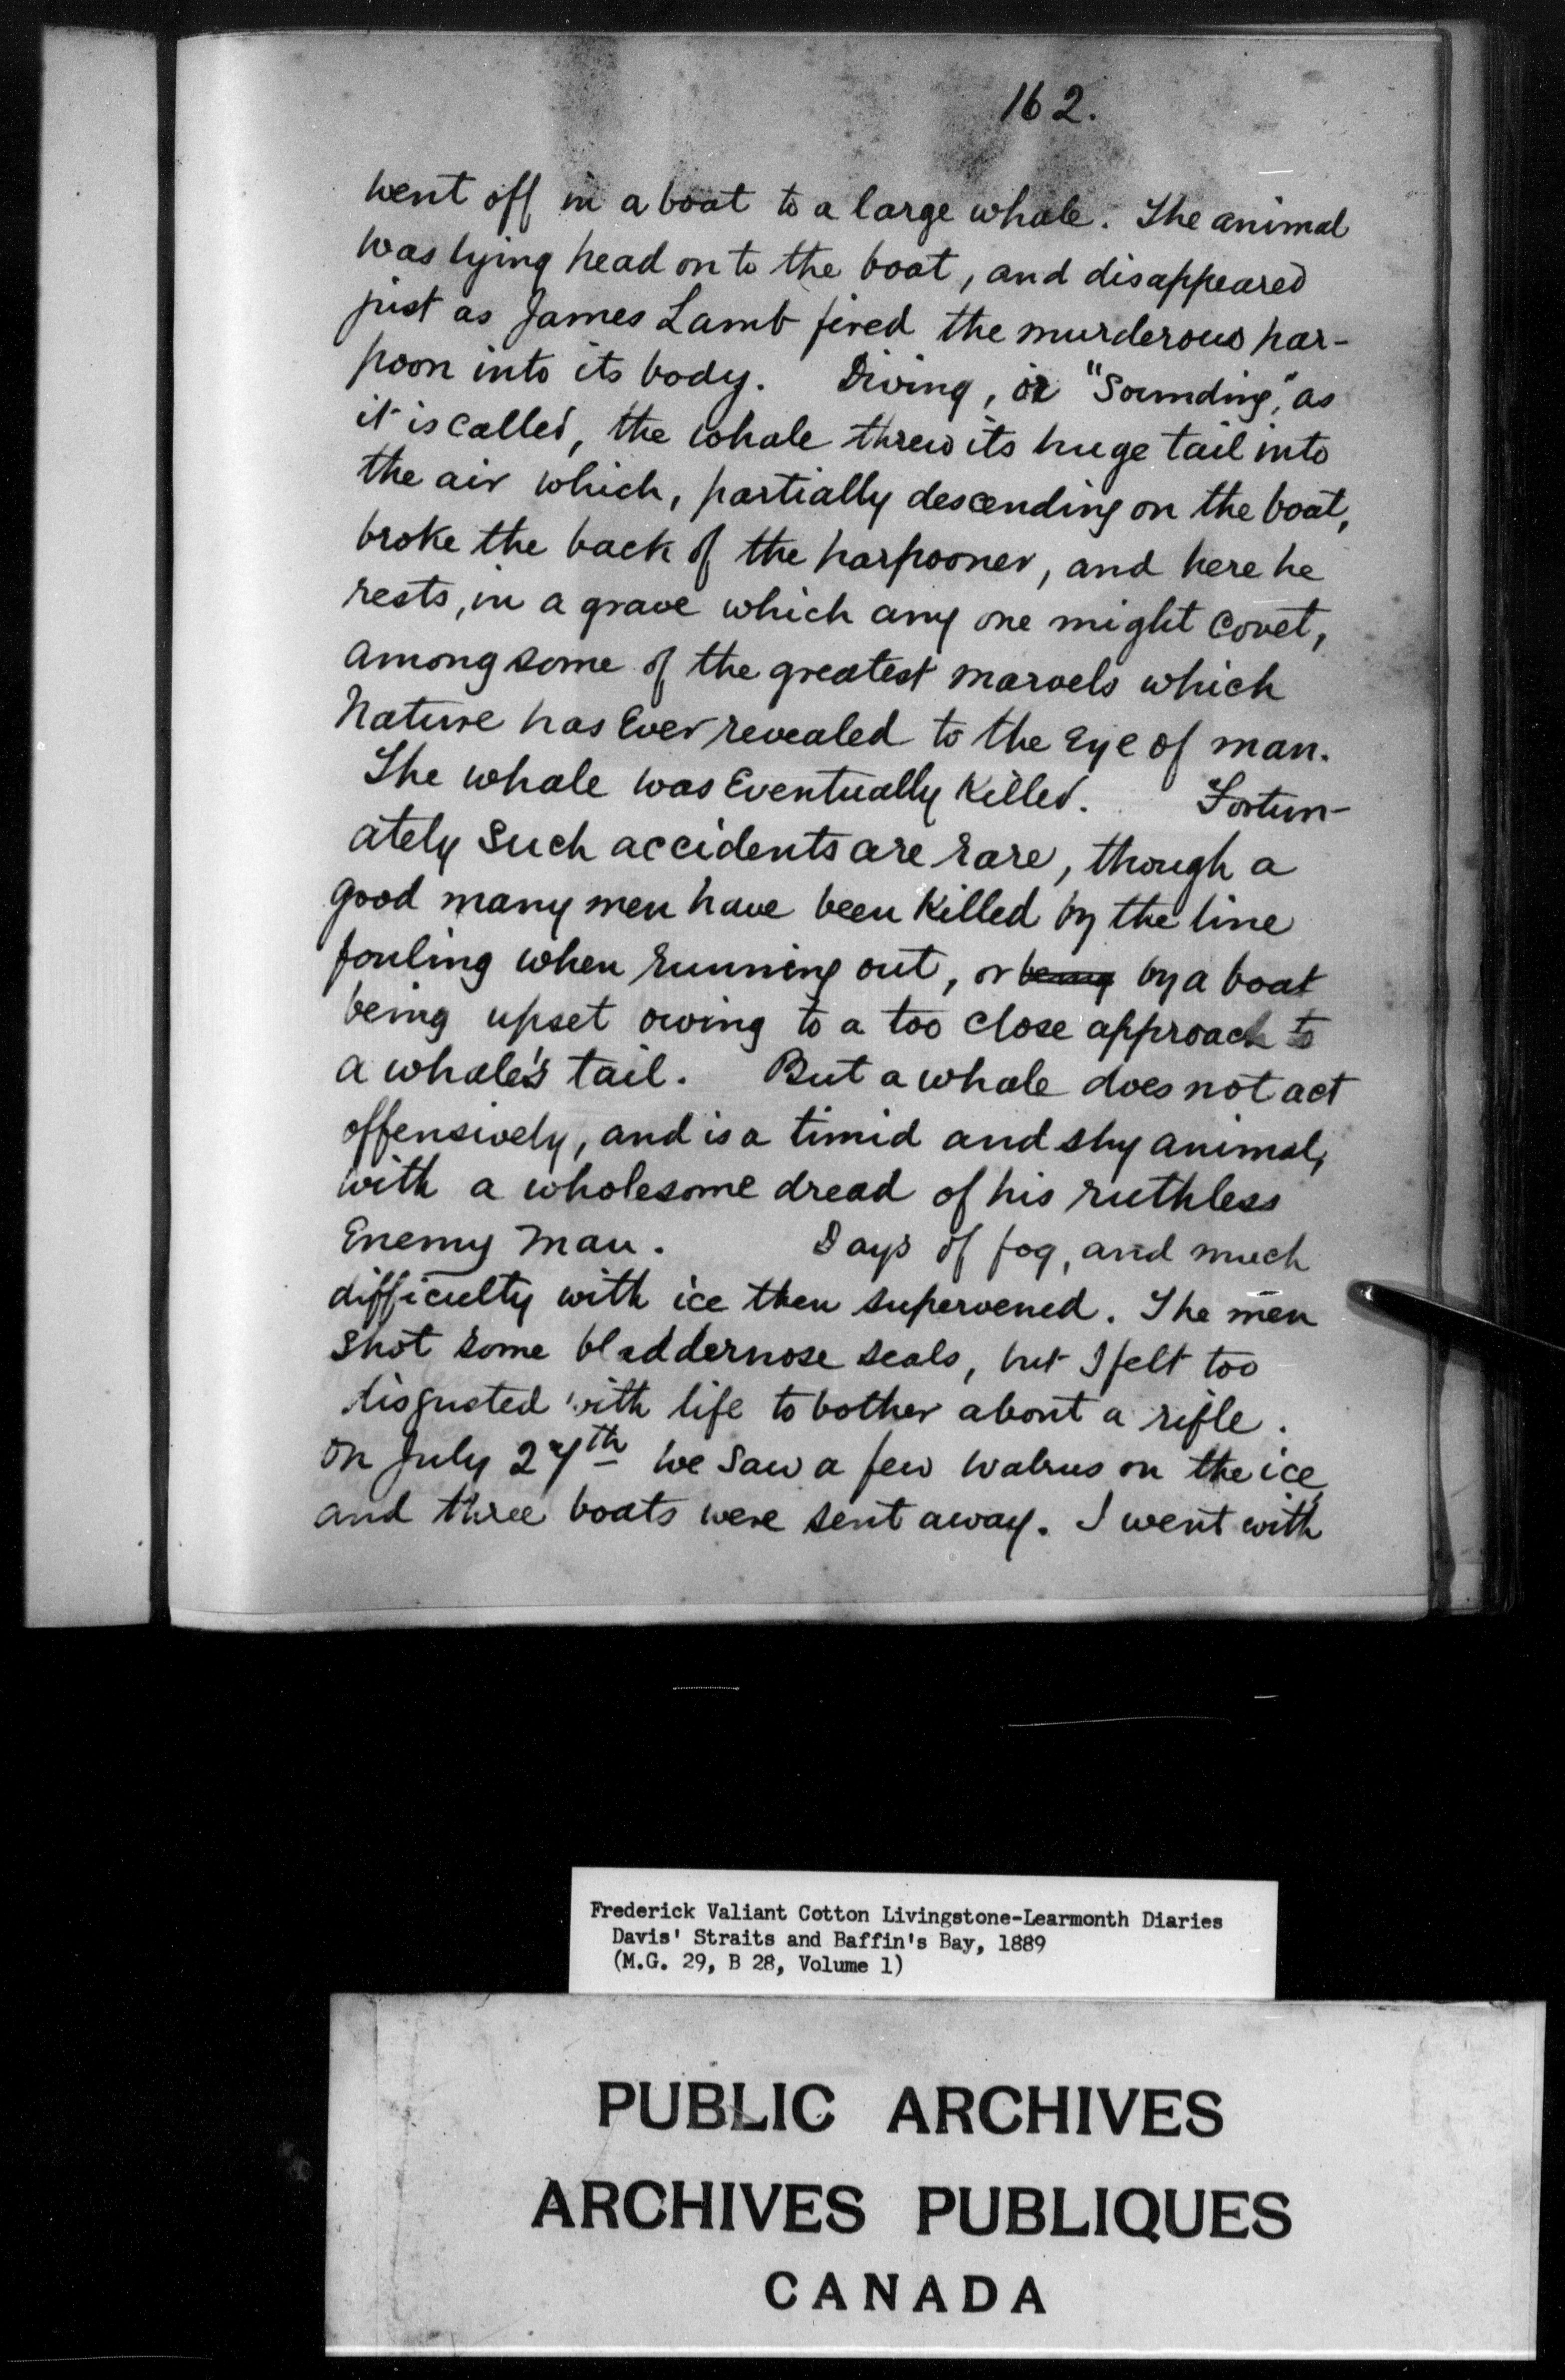 162.
went off in a boat to a large whale. The animal
was lying head on to the boat, and disappeared
just as James Lamb fired the murderous har-
poon into its body. Diving, or "Sounding," as
it is called, the whale threw its huge tail into
the air which, partially descending on the boat,
broke the back of the harpooner, and here he
rests, in a grave which any one might covet,
among some of the greatest marvels which
Nature has Ever revealed to the Eye of man.
The whale was Eventually Killed. Fortun-
ately such accidents are rare, though a
good many men have been Killed by the line
fouling when running out, or being by a boat
being upset owing to a too close approach to
a whale's tail. But a whale does not act
offensively, and is a timid and shy animal,
with a wholesome dread of his ruthless
Enemy Man. Days of fog, and much
difficulty with ice then supervened. The men
shot some bladdernose seals, but I felt too
disgusted with life to bother about a rifle.
On July 27th we saw a few walrus on the ice,
and three boats were sent away. I went with
Frederick Valiant Cotton Livingstone-Learmonth Diaries
Davis' Straits and Baffin's Bay, 1889
(M.G. 29, B 28, Volume 1)
PUBLIC ARCHIVES
ARCHIVES PUBLIQUES
CANADA